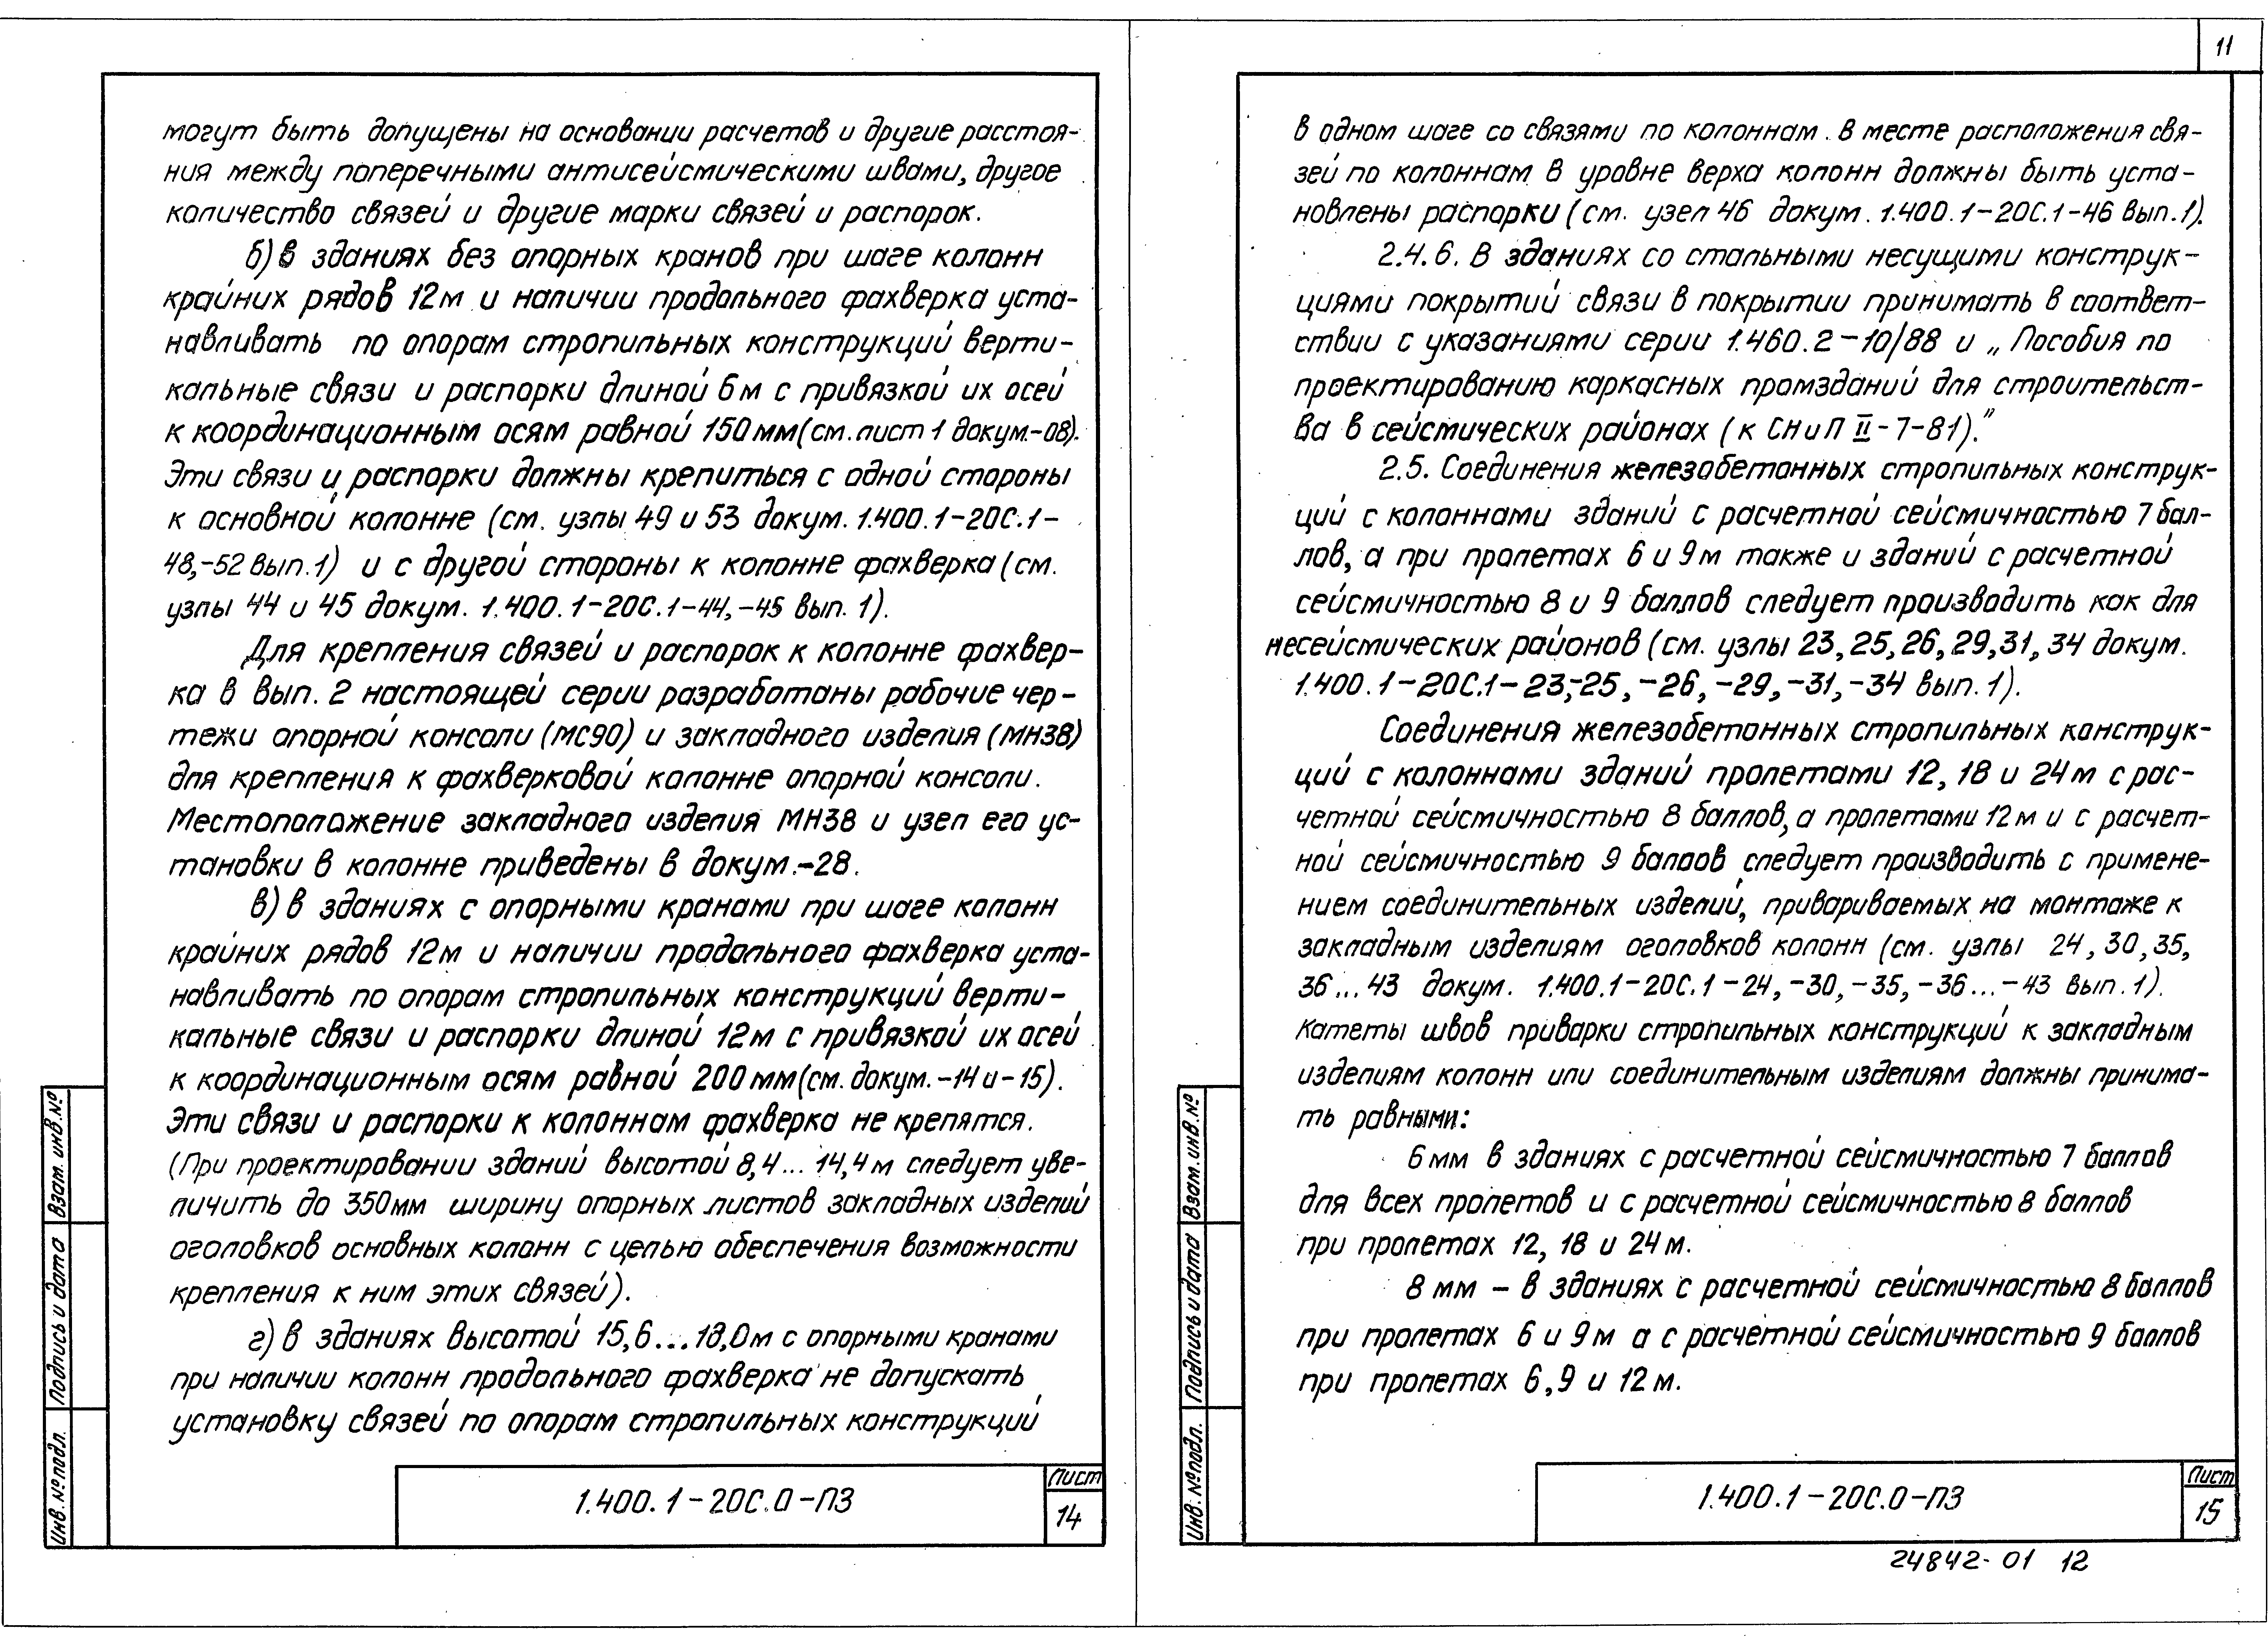 11
могут быть допущены на основании расчетов и другие расстоя-
ния между поперечными антисейсмическими швами, другое
количество связей и другие марки связей и распорок.
б) в зданиях без опорных кранов при шаге колонн
крайних рядов 12м и наличии продольного фахверка уста-
навливать по опорам стропильных конструкций верти-
кальные связи и распорки длиной 6м с привязкой их осей
к координационным осям равной 150мм (см. лист 1 докум.-08).
Эти связи и распорки должны крепиться с одной стороны
к основной колонне (см. узлы 49 и 53 докум. 1.400.1-20С.1-
48,-52 вып.1) и с другой стороны к колонне фахверка (см.
узлы 44 и 45 докум. 1.400.1-20С.1-44,-45 вып. 1).
Для крепления связей и распорок к колонне фахвер-
ка в вып. 2 настоящей серии разработаны рабочие чер-
тежи опорной консоли (МС90) и закладного изделия (МН38)
для крепления к фахверковой колонне опорной консоли.
Местоположение закладного изделия МН38 и узел его ус-
тановки в колонне приведены в докум.-28.
в) в зданиях с опорными кранами при шаге колонн
крайних рядов 12м и наличии продольного фахверка уста-
навливать по опорам стропильных конструкций верти-
кальные связи и распорки длиной 12м с привязкой их осей
к координационным осям равной 200мм (см. докум.-14 и -15).
Эти связи и распорки к колоннам фахверка не крепятся.
(При проектировании зданий высотой 8,4... 14,4м следует уве-
личить до 350мм ширину опорных листов закладных изделий
оголовков основных колонн с целью обеспечения возможности
крепления к ним этих связей).
г) в зданиях высотой 15,6...18,0м с опорными кранами
при наличии колонн продольного фахверка не допускать
установку связей по опорам стропильных конструкций
Взам. инв. №
Подпись и дата
Инв. № подл.
1.400.1-20С.0-ПЗ
Лист
14
в одном шаге со связями по колоннам. В месте расположения свя-
зей по колоннам в уровне верха колонн должны быть уста-
новлены распорки (см. узел 46 докум. 1.400.1-20С.1-46 вып.1).
2.4.6. В зданиях со стальными несущими конструк-
циями покрытий связи в покрытии принимать в соответ-
ствии с указаниями серии 1.460.2-10/88 и „Пособия по
проектированию каркасных промзданий для строительст-
ва в сейсмических районах (к СНиП II-7-81)."
2.5. Соединения железобетонных стропильных конструк-
ций с колоннами зданий с расчетной сейсмичностью 7 бал-
лов, а при пролетах 6 и 9м также и зданий с расчетной
сейсмичностью 8 и 9 баллов следует производить как для
несейсмических районов (см. узлы 23, 25, 26, 29, 31, 34 докум.
1.400.1-20С.1-23,-25,-26,-29,-31,-34 вып.1).
Соединения железобетонных стропильных конструк-
ций с колоннами зданий пролетами 12, 18 и 24м с рас-
четной сейсмичностью 8 баллов, а пролетами 12м и с расчет-
ной сейсмичностью 9 балаов следует производить с примене-
нием соединительных изделий, привариваемых на монтаже к
закладным изделиям оголовков колонн (см. узлы 24, 30, 35,
36...43 докум. 1.400.1-20С.1-24,-30,-35,-36...-43 вып.1).
Катеты швов приварки стропильных конструкций к закладным
изделиям колонн или соединительным изделиям должны принима-
ть равными:
6мм в зданиях с расчетной сейсмичностью 7 баллов
для всех пролетов и с расчетной сейсмичностью 8 баллов
при пролетах 12, 18 и 24м.
8 мм - в зданиях с расчетной сейсмичностью 8 баллов
при пролетах 6 и 9м а с расчетной сейсмичностью 9 баллов
при пролетах 6, 9 и 12м.
Взам. инв. №
Подпись и дата
Инв. № подл.
1.400.1-20С.0-ПЗ
Лист
15
24842-01 12